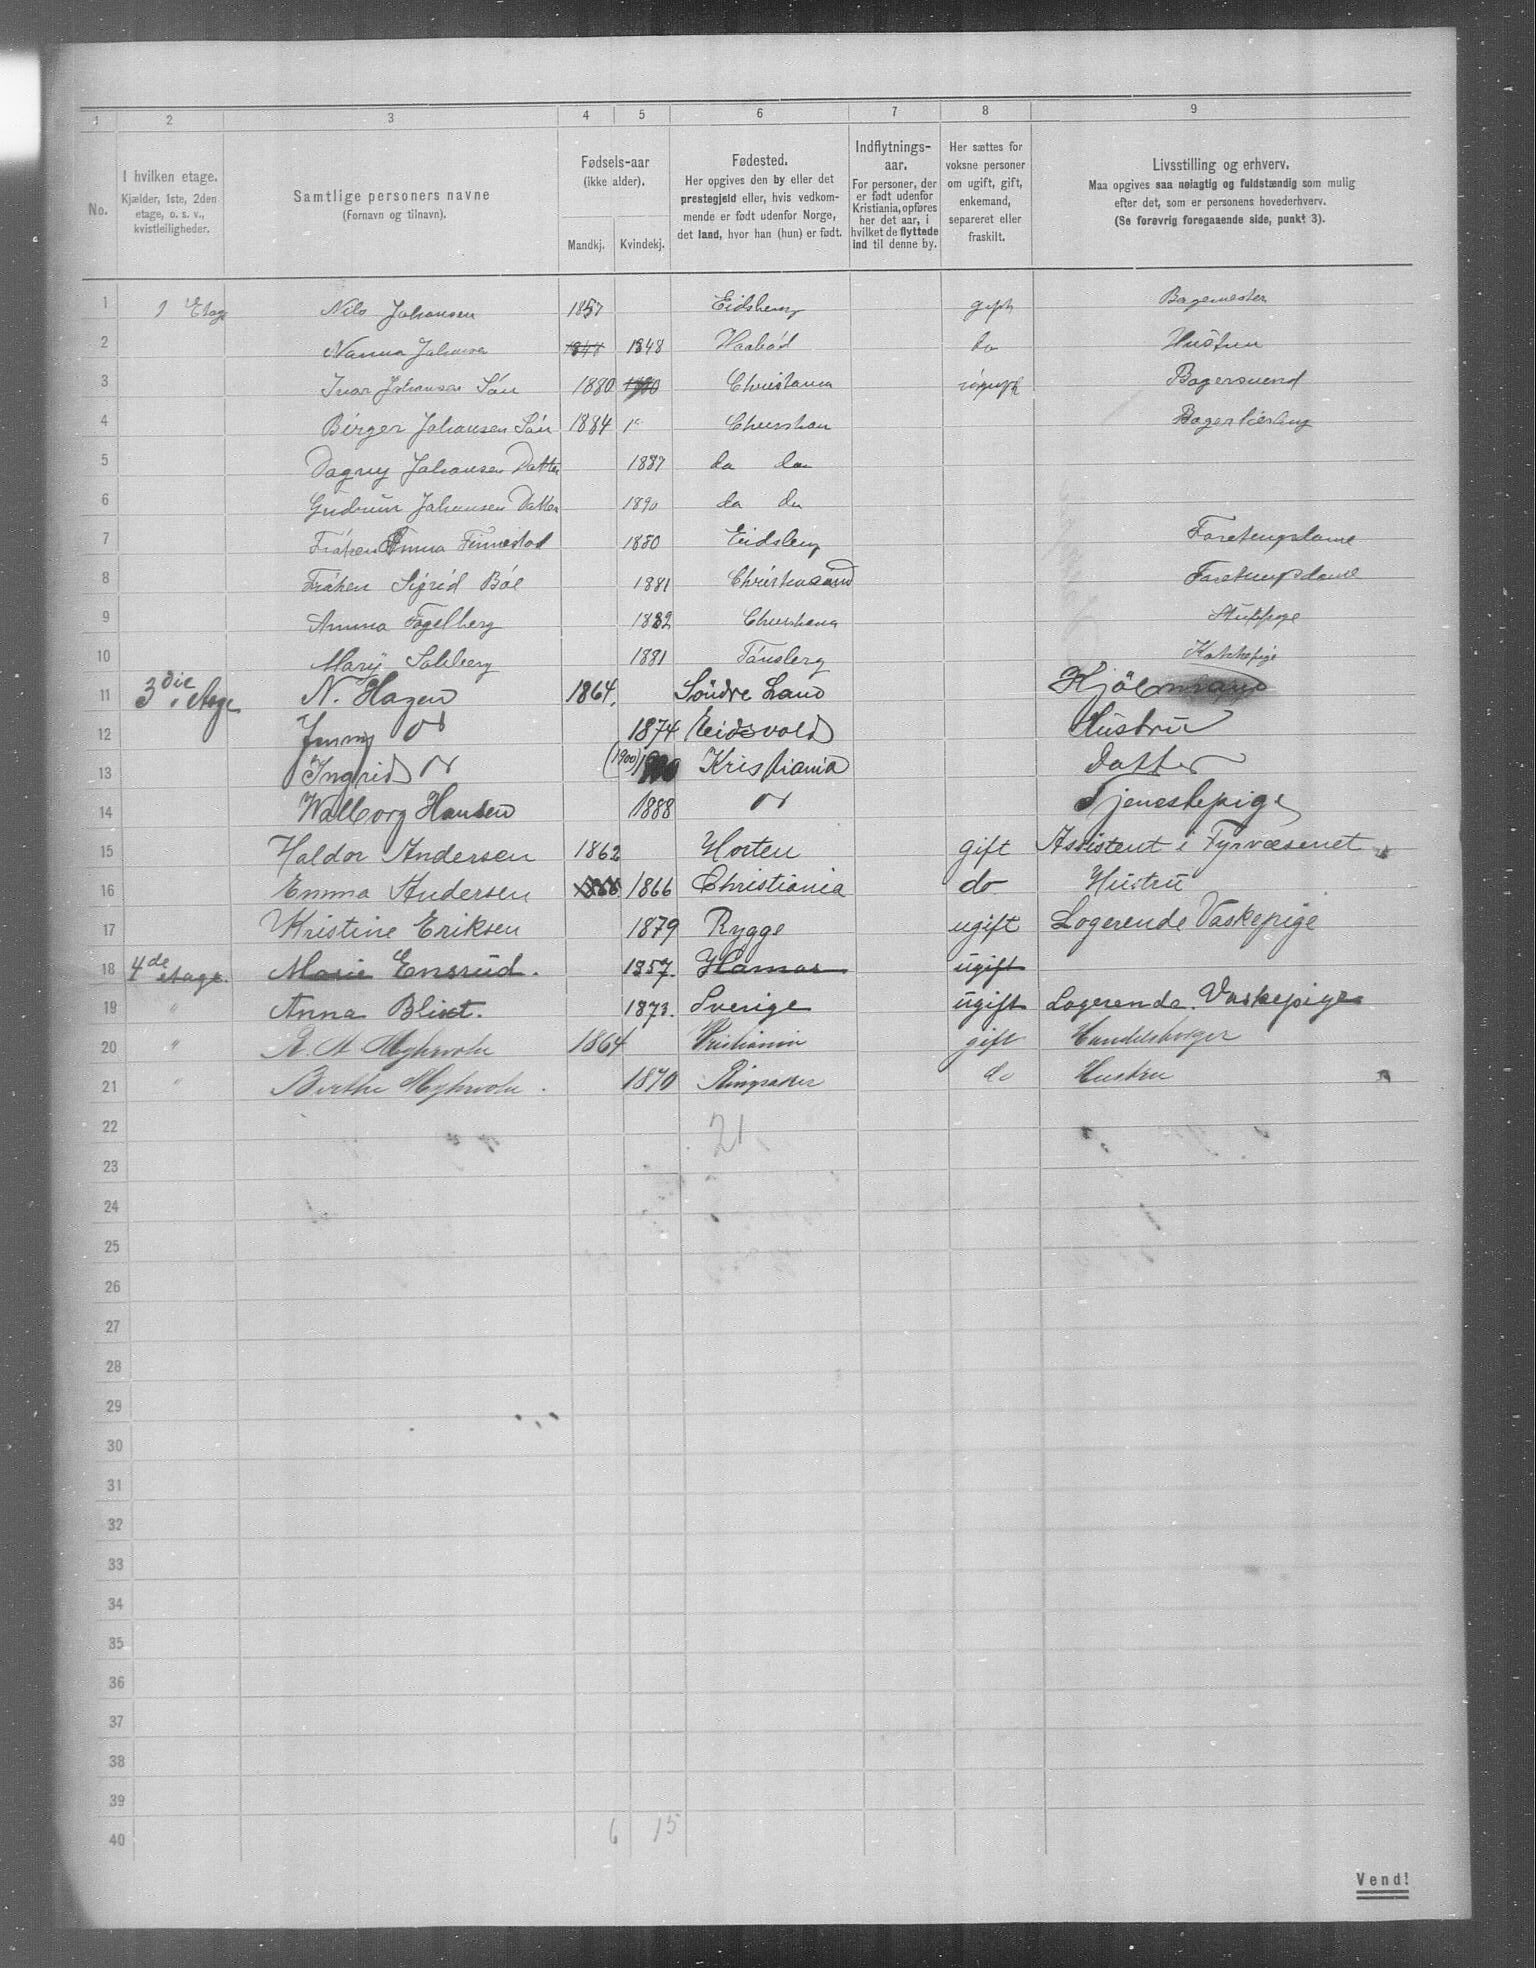 1 2 3 4 5 6 7 8 9
No.
I hvilken etage.
Kjælder, 1ste, 2den
etage, o. s. v.,
kvistleiligheder.
Samtlige personers navne
(Fornavn og tilnavn).
Fødsels-aar
(ikke alder).
Mandkj. Kvindekj.
Fødested.
Her opgives den by eller det
prestegjeld eller, hvis vedkom-
mende er født udenfor Norge,
det land, hvor han (hun) er født.
Indflytnings-
aar.
For personer, der
er født udenfor
Kristiania, opføres
her det aar, i
hvilket de flyttede
ind til denne by.
Her sættes for
voksne personer
om ugift, gift,
enkemand,
separeret eller
fraskilt.
Livsstilling og erhverv.
Maa opgives saa nøiagtig og fuldstændig som mulig
efter det, som er personens hovederhverv.
(Se forøvrig foregaaende side, punkt 3).
1 Etage Nils Johansen 1857 Eidsberg gift Bagemester
2 Nanna Johansen 1848 1848 do Hustru
3 Ivar Johansen Sön 1880 Christiania ugift Bagersvend
4 Birger Johansen Sön 1884 Bagerlærling
5 Dagny Johansen Datter 1887 do do
6 Gudrun Johansen Datter 1890 do do
7 Fröken Emma Finnestad 1880 Eidsberg
8 Fröken Sigrid Böe 1881 Christiansand
9 Anna Fogelberg 1882 Christiania Stuepige
10 Mary Solberg 1881 Tönsberg Kokkepige
11 3die Etage N. Hagen 1864. Söndre Land Kjölmand
12 Jenny do 1874 Eidsvold Hustru
13 Ingrid do (1900) Kristiania Datter
14 Walborg Hansen 1888 do Tjenestepige
15 Haldor Andersen 1862 Horten gift Assistent i Fyrvæsenet
16 Emma Andersen 1866 1866 Christiania do Hustru
17 Kristine Eriksen 1879 Rygge ugift Logerende Vaskepige
18 4de etage. Marie Ensrud. 1857. Hamar ugift
19 " Anna Blixt. 1873. Sverige ugift Logerende. Vaskepige
20 " 1864 Kristiania gift Handelsborger
21 " Berthe 1870 Ringsaker do Hustru
22 21
23
24
25
26
27
28
29
30
31
32
33
34
35
36
37
38
39
40 6 15
Vend!